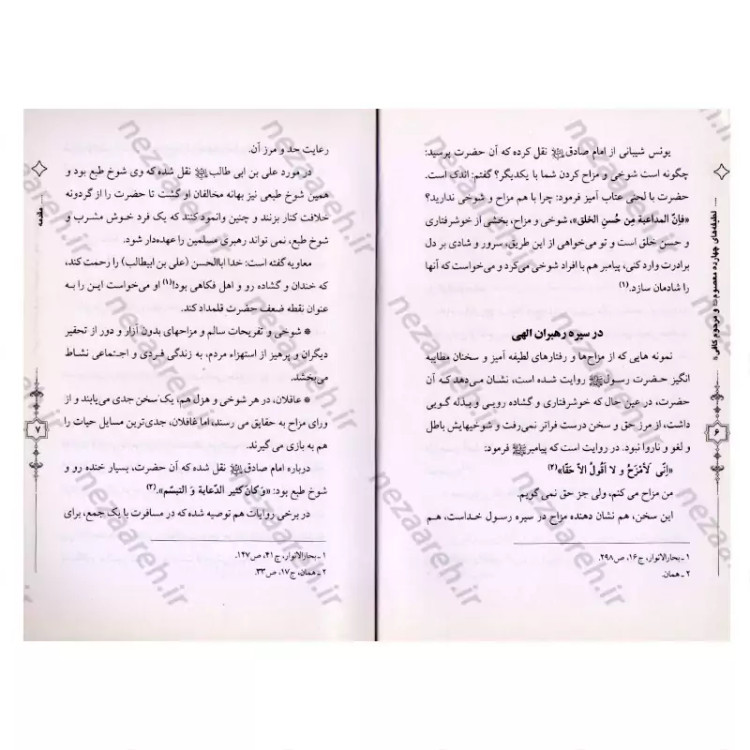 یونس شیبانی از امام صادق ﷺ نقل کرده که آن حضرت پرسید:
چگونه است شوخی و مزاح کردن شما با یکدیگر؟ گفتم: اندک است.
حضرت با لحنی عتاب آمیز فرمود: چرا با هم مزاح و شوخی ندارید؟
«فَاِنَّ المداعبة مِن حُسنِ الخلق»، شوخی و مزاح، بخشی از خوشرفتاری
و حسن خلق است و تو می‌خواهی از این طریق، سرور و شادی بر دل
برادرت وارد کنی، پیامبر هم با افراد شوخی می‌کرد و می‌خواست که آنها
را شادمان سازد.(۱)
در سیره رهبران الهی
نمونه هایی که از مزاح‌ها و رفتارهای لطیفه آمیز و سخنان مطایبه
انگیز حضرت رسول ﷺ روایت شده است، نشان می‌دهد که آن
حضرت، در عین حال که خوشرفتاری و گشاده رویی و بذله گویی
داشت، از مرز حق و سخن درست فراتر نمی‌رفت و شوخیهایش باطل
و لغو و ناروا نبود. در روایت است که پیامبر ﷺ فرمود:
«اِنّی لَاَمْزَحُ و لا اَقُولُ الاّ حَقّا»(۲)
من مزاح می کنم، ولی جز حق نمی گویم.
این سخن، هم نشان دهنده مزاح در سیره رسول خداست، هم
۱ ـ بحارالانوار، ج۱۶، ص۲۹۸.
۲ ـ همان.
لطیفه‌های چهارده معصوم و مرحوم کافی
۶
رعایت حد و مرز آن.
در مورد علی بن ابی طالب ﷺ نقل شده که وی شوخ طبع بود و
همین شوخ طبعی نیز بهانه مخالفان او گشت تا حضرت را از گردونه
خلافت کنار بزنند و چنین وانمود کنند که یک فرد خوش مشرب و
شوخ طبع، نمی تواند رهبری مسلمین را عهده‌دار شود.
معاویه گفته است: خدا اباالحسن (علی بن ابیطالب) را رحمت کند،
که خندان و گشاده رو و اهل فکاهی بود!(۱) او می‌خواست این را به
عنوان نقطه ضعف حضرت قلمداد کند.
* شوخی و تفریحات سالم و مزاحهای بدون آزار و دور از تحقیر
دیگران و پرهیز از استهزاء مردم، به زندگی فردی و اجتماعی نشاط
می‌بخشد.
* عاقلان، در هر شوخی و هزل هم، یک سخن جدی می‌یابند و از
ورای مزاح به حقایق می رسند، اما غافلان، جدی‌ترین مسایل حیات را
هم به بازی می گیرند.
درباره امام صادق ﷺ نقل شده که آن حضرت، بسیار خنده رو و
شوخ طبع بود: «وَ کانَ کثیر الدّعابة وَ التبسّم».(۲)
در برخی روایات هم توصیه شده که در مسافرت با یک جمع، برای
۱ ـ بحارالانوار، ج۴۱، ص۱۴۷.
۲ ـ همان، ج۱۷، ص۳۳.
مقدمه
۷
nezaareh.ir